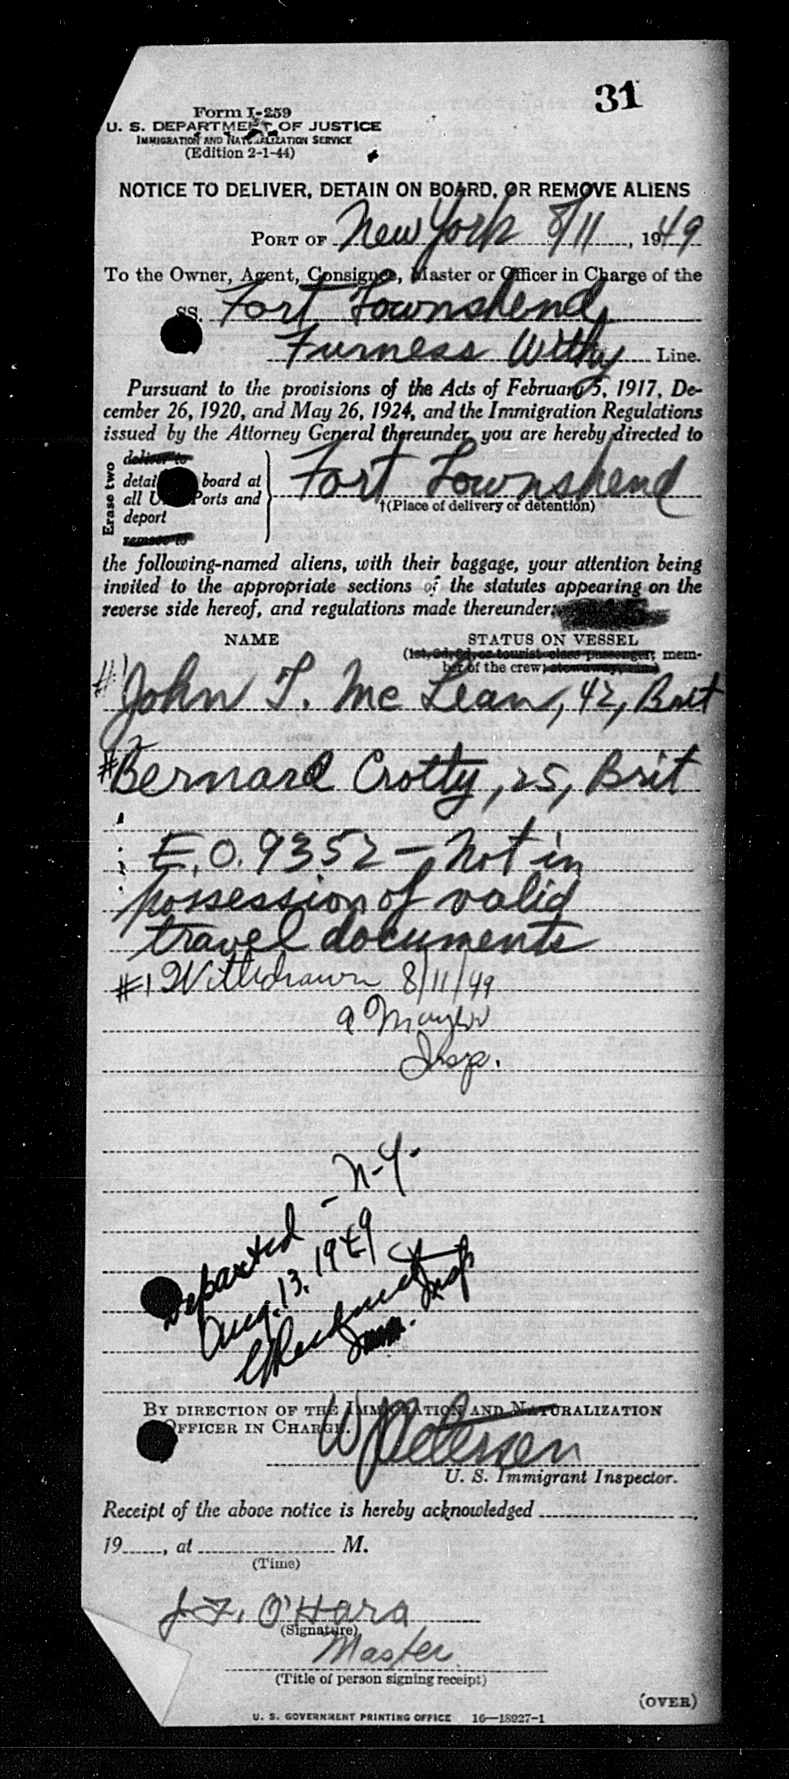 31
Form I-259
U. S. DEPARTMENT OF JUSTICE
IMMIGRATION AND NATURALIZATION SERVICE
(Edition 2-1-44)
NOTICE TO DELIVER, DETAIN ON BOARD, OR REMOVE ALIENS
PORT OF New York 8/11, 1949
To the Owner, Agent, Consignee, Master or Officer in Charge of the
SS. Fort Townshend
Furness Withy Line.
Pursuant to the provisions of the Acts of February 5, 1917, De-
cember 26, 1920, and May 26, 1924, and the Immigration Regulations
issued by the Attorney General thereunder, you are hereby directed to
Erase two
deliver to
detain board at
all U Ports and
deport
remove to
Fort Townshend
†(Place of delivery or detention)
the following-named aliens, with their baggage, your attention being
invited to the appropriate sections of the statutes appearing on the
reverse side hereof, and regulations made thereunder:
NAME STATUS ON VESSEL
(1st, 2d, 3d, or tourist class passenger; mem-
ber of the crew; stowaway, etc.)
#1 John T. McLean, 42, Brit
#2 Bernard Crotty, 25, Brit
E.O. 9352 – Not in
possession of valid
travel documents
#1 Withdrawn 8/11/49
Insp.
Departed – N-Y-
Aug. 13, 1949
Imm. Insp
BY DIRECTION OF THE IMMIGRATION AND NATURALIZATION
OFFICER IN CHARGE.
W Petersen
U. S. Immigrant Inspector.
Receipt of the above notice is hereby acknowledged
19, at M.
(Time)
J. F. O'Hara
(Signature)
Master
(Title of person signing receipt)
(OVER)
U. S. GOVERNMENT PRINTING OFFICE 16—18927-1